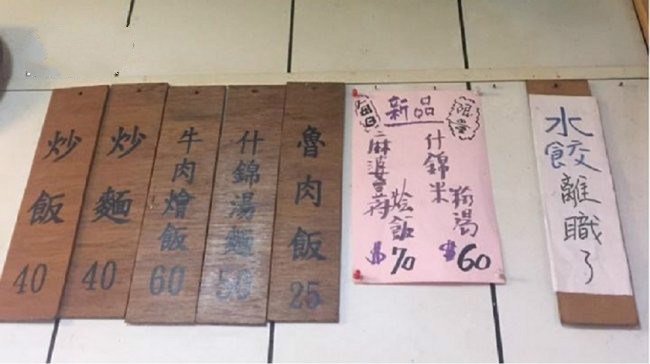 炒飯 40
炒麵 40
牛肉燴飯 60
什錦湯麵 50
魯肉飯 25
每日
新品
限量
什錦米粉湯
$60
麻婆豆腐烩飯
$70
水餃離職了